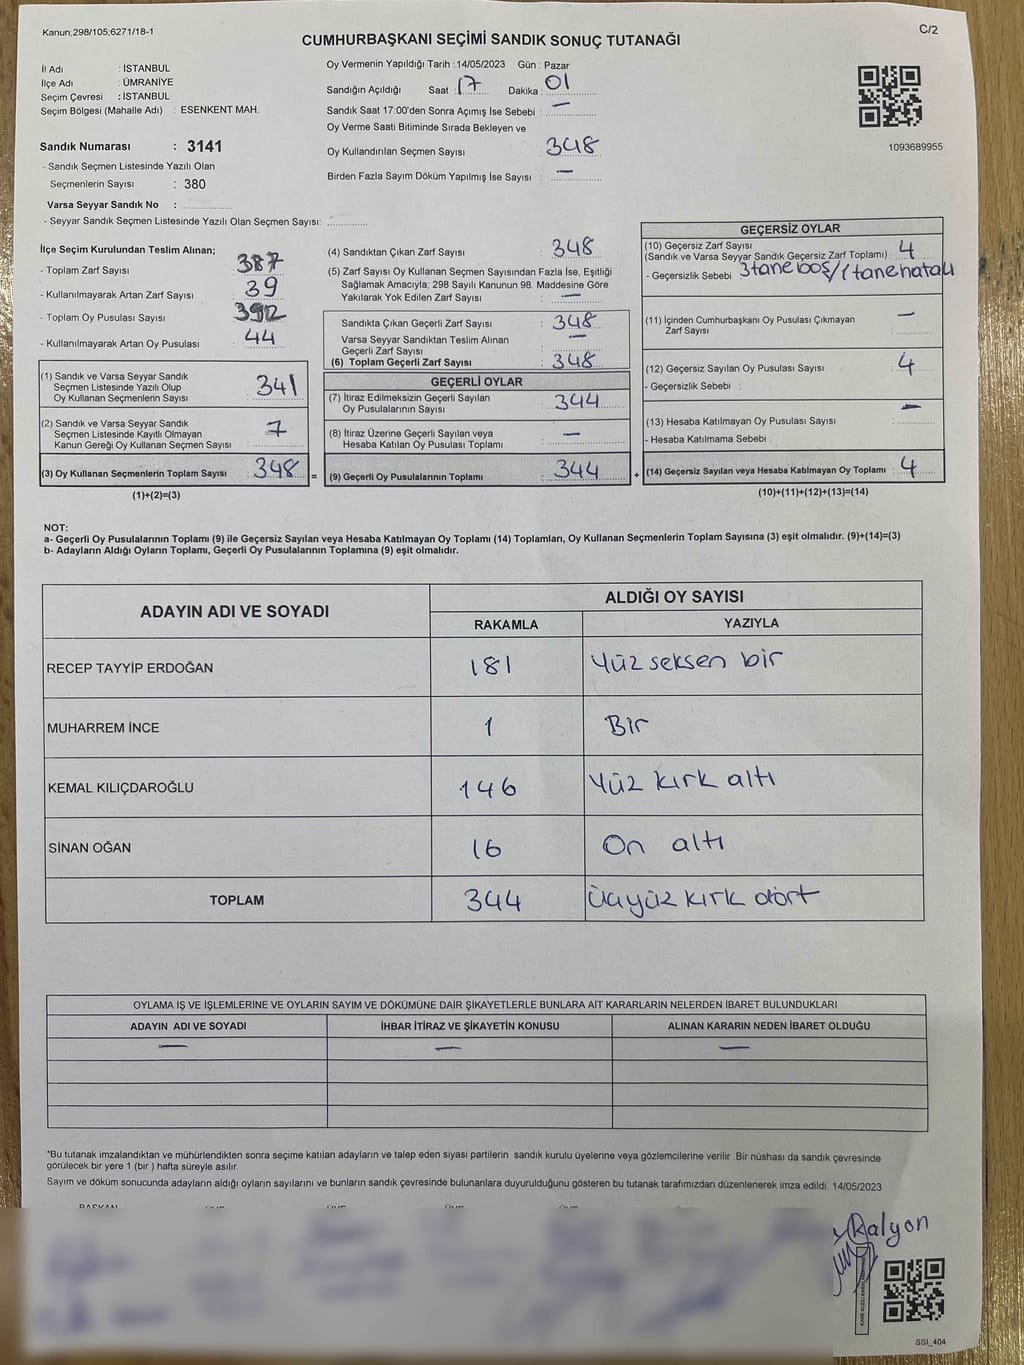 Kanun;298/105;6271/18-1
C/2
CUMHURBAŞKANI SEÇİMİ SANDIK SONUÇ TUTANAĞI
İl Adı : İSTANBUL
İlçe Adı : ÜMRANİYE
Seçim Çevresi : İSTANBUL
Seçim Bölgesi (Mahalle Adı) : ESENKENT MAH.
Sandık Numarası : 3141
- Sandık Seçmen Listesinde Yazılı Olan
Seçmenlerin Sayısı : 380
Varsa Seyyar Sandık No :
- Seyyar Sandık Seçmen Listesinde Yazılı Olan Seçmen Sayısı:
Oy Vermenin Yapıldığı Tarih :14/05/2023 Gün : Pazar
Sandığın Açıldığı Saat : 17 Dakika : 01
Sandık Saat 17:00'den Sonra Açımış İse Sebebi : —
Oy Verme Saati Bitiminde Sırada Bekleyen ve
Oy Kullandırılan Seçmen Sayısı : 348
Birden Fazla Sayım Döküm Yapılmış İse Sayısı : —
1093689955
İlçe Seçim Kurulundan Teslim Alınan;
- Toplam Zarf Sayısı : 387
- Kullanılmayarak Artan Zarf Sayısı : 39
- Toplam Oy Pusulası Sayısı : 392
- Kullanılmayarak Artan Oy Pusulası : 44
(1) Sandık ve Varsa Seyyar Sandık
Seçmen Listesinde Yazılı Olup
Oy Kullanan Seçmenlerin Sayısı : 341
(2) Sandık ve Varsa Seyyar Sandık
Seçmen Listesinde Kayıtlı Olmayan
Kanun Gereği Oy Kullanan Seçmen Sayısı : 7
(3) Oy Kullanan Seçmenlerin Toplam Sayısı : 348
(1)+(2)=(3)
(4) Sandıktan Çıkan Zarf Sayısı : 348
(5) Zarf Sayısı Oy Kullanan Seçmen Sayısından Fazla İse, Eşitliği
Sağlamak Amacıyla; 298 Sayılı Kanunun 98. Maddesine Göre
Yakılarak Yok Edilen Zarf Sayısı : —
Sandıkta Çıkan Geçerli Zarf Sayısı : 348
Varsa Seyyar Sandıktan Teslim Alınan
Geçerli Zarf Sayısı : —
(6) Toplam Geçerli Zarf Sayısı : 348
GEÇERLİ OYLAR
(7) İtiraz Edilmeksizin Geçerli Sayılan
Oy Pusulalarının Sayısı : 344
(8) İtiraz Üzerine Geçerli Sayılan veya
Hesaba Katılan Oy Pusulası Toplamı : —
= (9) Geçerli Oy Pusulalarının Toplamı : 344
GEÇERSİZ OYLAR
(10) Geçersiz Zarf Sayısı
(Sandık ve Varsa Seyyar Sandık Geçersiz Zarf Toplamı) : 4
- Geçersizlik Sebebi 3 tane boş/1 tane hatalı
(11) İçinden Cumhurbaşkanı Oy Pusulası Çıkmayan
Zarf Sayısı : —
(12) Geçersiz Sayılan Oy Pusulası Sayısı : 4
- Geçersizlik Sebebi :
(13) Hesaba Katılmayan Oy Pusulası Sayısı : —
- Hesaba Katılmama Sebebi :
+ (14) Geçersiz Sayılan veya Hesaba Katılmayan Oy Toplamı : 4
(10)+(11)+(12)+(13)=(14)
NOT:
a- Geçerli Oy Pusulalarının Toplamı (9) ile Geçersiz Sayılan veya Hesaba Katılmayan Oy Toplamı (14) Toplamları, Oy Kullanan Seçmenlerin Toplam Sayısına (3) eşit olmalıdır. (9)+(14)=(3)
b- Adayların Aldığı Oyların Toplamı, Geçerli Oy Pusulalarının Toplamına (9) eşit olmalıdır.
ADAYIN ADI VE SOYADI
ALDIĞI OY SAYISI
RAKAMLA YAZIYLA
RECEP TAYYİP ERDOĞAN 181 Yüz seksen bir
MUHARREM İNCE 1 Bir
KEMAL KILIÇDAROĞLU 146 Yüz kırk altı
SİNAN OĞAN 16 On altı
TOPLAM 344 üçyüz kırk dört
OYLAMA İŞ VE İŞLEMLERİNE VE OYLARIN SAYIM VE DÖKÜMÜNE DAİR ŞİKAYETLERLE BUNLARA AİT KARARLARIN NELERDEN İBARET BULUNDUKLARI
ADAYIN ADI VE SOYADI İHBAR İTİRAZ VE ŞİKAYETİN KONUSU ALINAN KARARIN NEDEN İBARET OLDUĞU
— — —
*Bu tutanak imzalandıktan ve mühürlendikten sonra seçime katılan adayların ve talep eden siyasi partilerin sandık kurulu üyelerine veya gözlemcilerine verilir .Bir nüshası da sandık çevresinde
görülecek bir yere 1 (bir ) hafta süreyle asılır.
Sayım ve döküm sonucunda adayların aldığı oyların sayılarını ve bunların sandık çevresinde bulunanlara duyurulduğunu gösteren bu tutanak tarafımızdan düzenlenerek imza edildi. 14/05/2023
BAŞKAN ÜYE ÜYE ÜYE ÜYE
Kalyon
SSİ_404